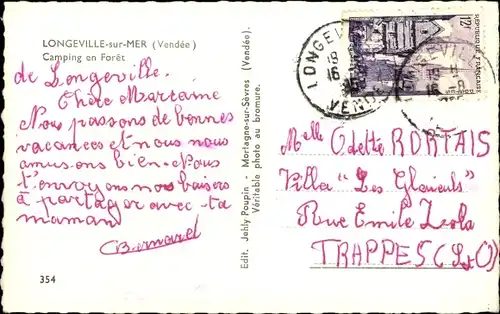 LONGEVILLE-sur-MER (Vendée)
Camping en Forêt
de Longeville.
Chère Martame
Nous passons de bonnes
vacances et nous nous
amusons bien. Nous
t'envoyons nos baisers
à partager avec ta
maman
Bernard
354
Edit. Jehly Poupin - Mortagne-sur-Sèvres (Vendée).
Véritable photo au bromure.
LONGEVILLE
VENDÉE
12F
REPUBLIQUE FRANÇAISE
Melle Odette RORTAIS
Villa "Les Glaïeuls"
Rue Emile Zola
TRAPPES (S et O)